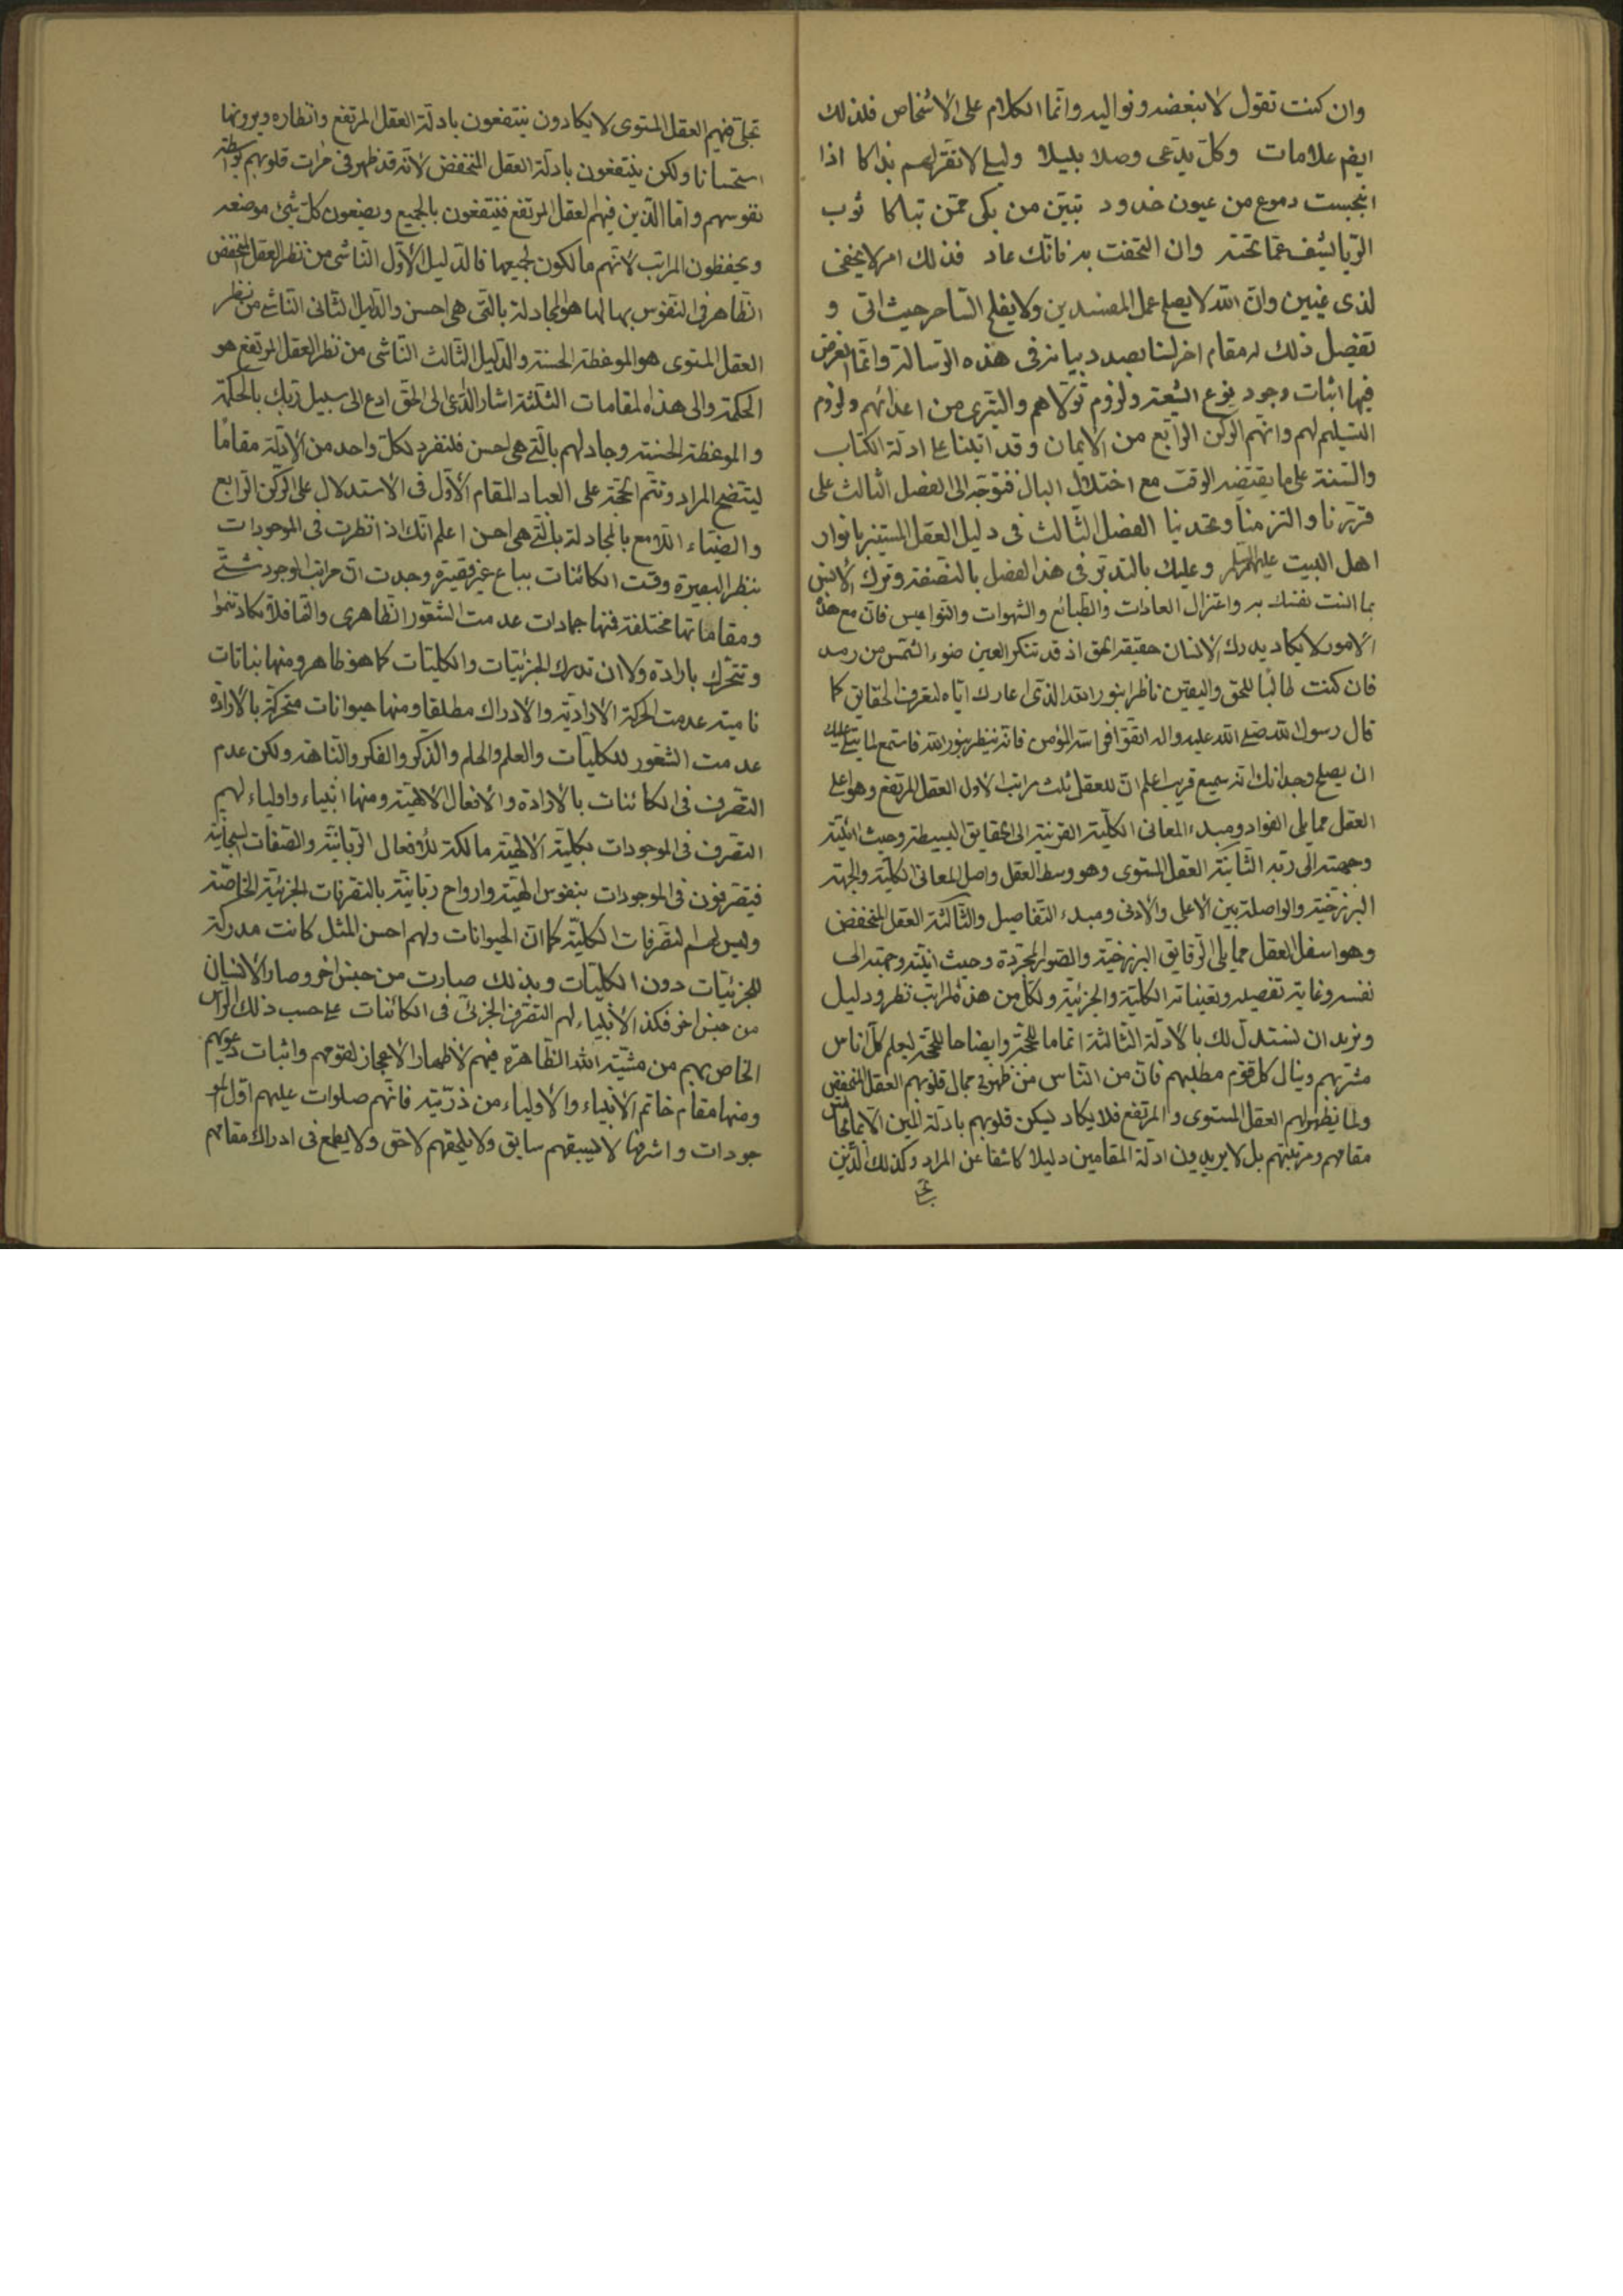 وان كنت تقول لا نبغضه ونواليه وانما الكلام على الاشخاص فلذلك
ايضم علامات وكل يدعى وصلا بليلا وليلى لا تقر لهم بذاكا اذا
انبجست دموع من عيون خدود تبين من بكى ممن تباكا ثوب
الريا يشف عما تحته وان التحفت به فانك عاد فذلك امر لا يخفى
لذى عينين وان الله لا يصلح عمل المفسدين ولا يفلح الساحر حيث اتى و
تفصيل ذلك له مقام اخر لسنا بصدد بيانه فى هذه الرسالة وانما الغرض
فيها اثبات وجود نوع الشيعة ولزوم تولاهم والتبرى من اعدائهم ولزوم
التسليم لهم وانهم الركن الرابع من الايمان وقد اتينا على ادلة الكتاب
والسنة على ما يقتضيه الوقت مع اختلال البال فنتوجه الى الفصل الثالث على
قررنا والتزمنا وعقدنا الفصل الثالث فى دليل العقل المستنير بانوار
اهل البيت عليهم السلم وعليك بالتدبر فى هذا الفصل بالنصفة وترك الانس
بما انست نفسك به واعتزال العادات والطبائع والشهوات والنواميس فان مع هذه
الامور لا يكاد يدرك الانسان حقيقة الحق اذ قد تنكر العين ضوء الشمس من رمد
فان كنت طالبا للحق واليقين ناظرا بنور الله الذى اعارك اياه لتعرف الحقايق كما
قال رسول الله صلى الله عليه واله اتقوا فراسة المؤمن فانه ينظر بنور الله فاستمع لما يتلى عليك
ان يصلح وجدانك انه سميع قريب اعلم ان للعقل ثلث مراتب الاول العقل المرتفع وهو اعلى
العقل مما يلى الفواد ومبدء المعانى الكلية القريبة الى الحقايق البسيطة وحيث انيته
وجهته الى ربه الثانية العقل المستوى وهو وسط العقل واصل المعانى الكلية والجهة
البرزخية والواصلة بين الاعلى والادنى ومبدء التفاصيل والثالثة العقل المنخفض
وهو اسفل العقل مما يلى الرقايق البرزخية والصور المجردة وحيث انيته وجهته الى
نفسه وغاية تفصيله وتعيناته الكلية والجزئية ولكل من هذه المراتب نظر ودليل
ونريد ان نستدل لك بالادلة الثالثة اتماما للحجة وايضاحا للمحجة ليعلم كل اناس
مشربهم وينال كل قوم مطلبهم فان من الناس من ظهر فى مجال قلوبهم العقل المنخفض
ولما يظهر لهم العقل المستوى والمرتفع فلا يكاد يسكن قلوبهم بادلة الين الا بما يجانس
مقامهم ومرتبتهم بل لا يريدون ادلة المقامين دليلا كاشفا عن المراد وكذلك الذين
تجلى فيهم العقل المستوى لا يكادون ينتفعون بادلة العقل المرتفع وانظاره ويرونها
استحسانا ولكن ينتفعون بادلة العقل المنخفض لانه قد ظهر فى مرات قلوبهم بواسطة
نفوسهم واما الذين فيهم العقل المرتفع فينتفعون بالجميع ويضعون كل شئ موضعه
ويحفظون المراتب لانهم مالكون لجميعها فالدليل الاول الناشى من نظر العقل المنخفض
الظاهر فى النفوس بها لها هو المجادلة بالتى هى احسن والدليل الثانى الناشى من نظر
العقل المستوى هو الموعظة الحسنة والدليل الثالث الناشى من نظر العقل المرتفع هو
الحكمة والى هذه المقامات الثلثة اشار الداعى الى الحق ادع الى سبيل ربك بالحكمة
والموعظة الحسنة وجادلهم بالتى هى احسن فلنفرد لكل واحد من الادلة مقاما
ليتضح المراد وتتم الحجة على العباد المقام الاول فى الاستدلال على الركن الرابع
والضياء اللامع بالمجادلة بالتى هى احسن اعلم انك اذا نظرت فى الموجودات
بنظر البصيرة وقست الكائنات بباع غير قصيرة وجدت ان مراتب الوجود شتى
ومقاماتها مختلفة فمنها جمادات عدمت الشعور الظاهرى والنما فلا تكاد تنموا
وتتحرك بارادة ولا ان تدرك الجزئيات والكليات كما هو ظاهر ومنها نباتات
نامية عدمت الحركة الارادية والادراك مطلقا ومنها حيوانات متحركة بالارادة
عدمت الشعور للكليات والعلم والحلم والذكر والفكر والنباهة ولكن عدم
التصرف فى الكائنات بالارادة والافعال الالهية ومنها انبياء واولياء لهم
التصرف فى الموجودات بكلية الالهية مالكة للافعال الربانية والصفات السبحانية
فيتصرفون فى الموجودات بنفوس الهية وارواح ربانية بالتصرفات الجزئية الخاصة
وليس لهم التصرفات الكلية كما ان الحيوانات ولهم احسن المثل كانت مدركة
للجزئيات دون الكليات وبذلك صارت من جنس اخر وصار الانسان
من جنس اخر فكذا الانبياء لهم التصرف الجزئى فى الكائنات على حسب ذلك الراس
الخاص بهم من مشية الله الظاهرة فيهم لاظهار الاعجاز لقومهم واثبات دعوتهم
ومنها مقام خاتم الانبياء والاولياء من ذريته فانهم صلوات عليهم اول المو
جودات واشرفها لا يسبقهم سابق ولا يلحقهم لاحق ولا يطمع فى ادراك مقامهم